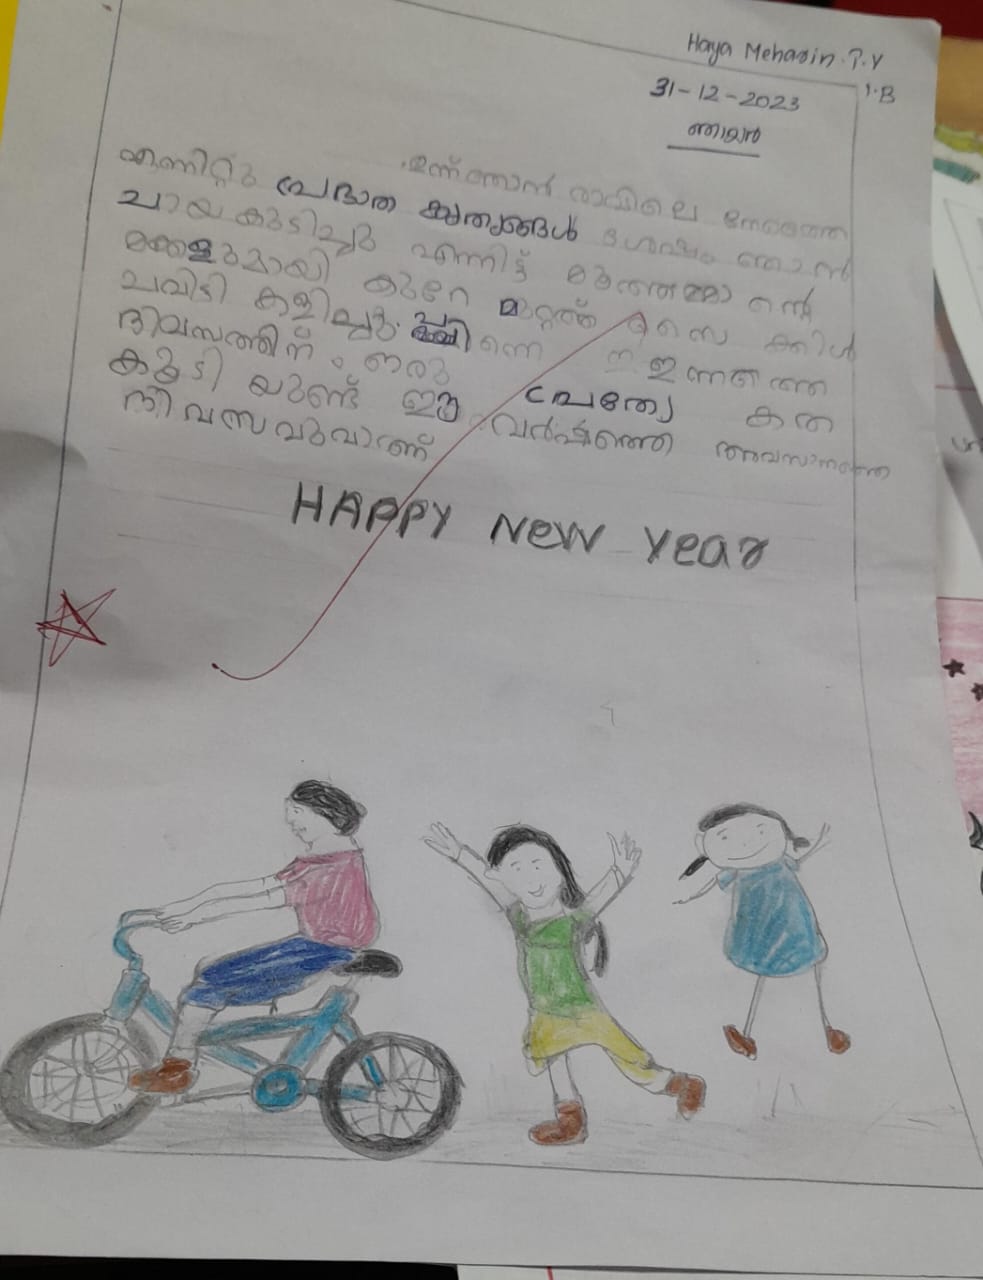 Haya Meharin.P.V
1.B
31-12-2023
ഞായർ
ഇന്ന് ഞാൻ രാവിലെ നേരത്തെ
എണിറ്റു പ്രഭാത കൃത്യങ്ങൾ ശേഷം ഞാൻ
ചായ കുടിച്ചു എന്നിട്ട് മുത്തമ്മാ ന്റെ
മക്കളുമായി കുറേ മുറ്റത്ത് സൈ ക്കിൾ
ചവിട്ടി കളിച്ചു. പിന്നെ ഇന്നത്തെ
ദിവസത്തിന് ഒരു പ്രത്യേ കത
കൂടി യുണ്ട് ഈ വർഷത്തെ അവസാനത്തെ
ദിവസവുവാണ്
HAPPY New Year